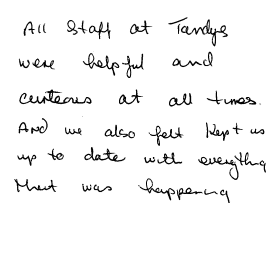 All staff at Tandys
were helpful and
curteous at all times.
And we also felt kept us
up to date with everything
that was happening